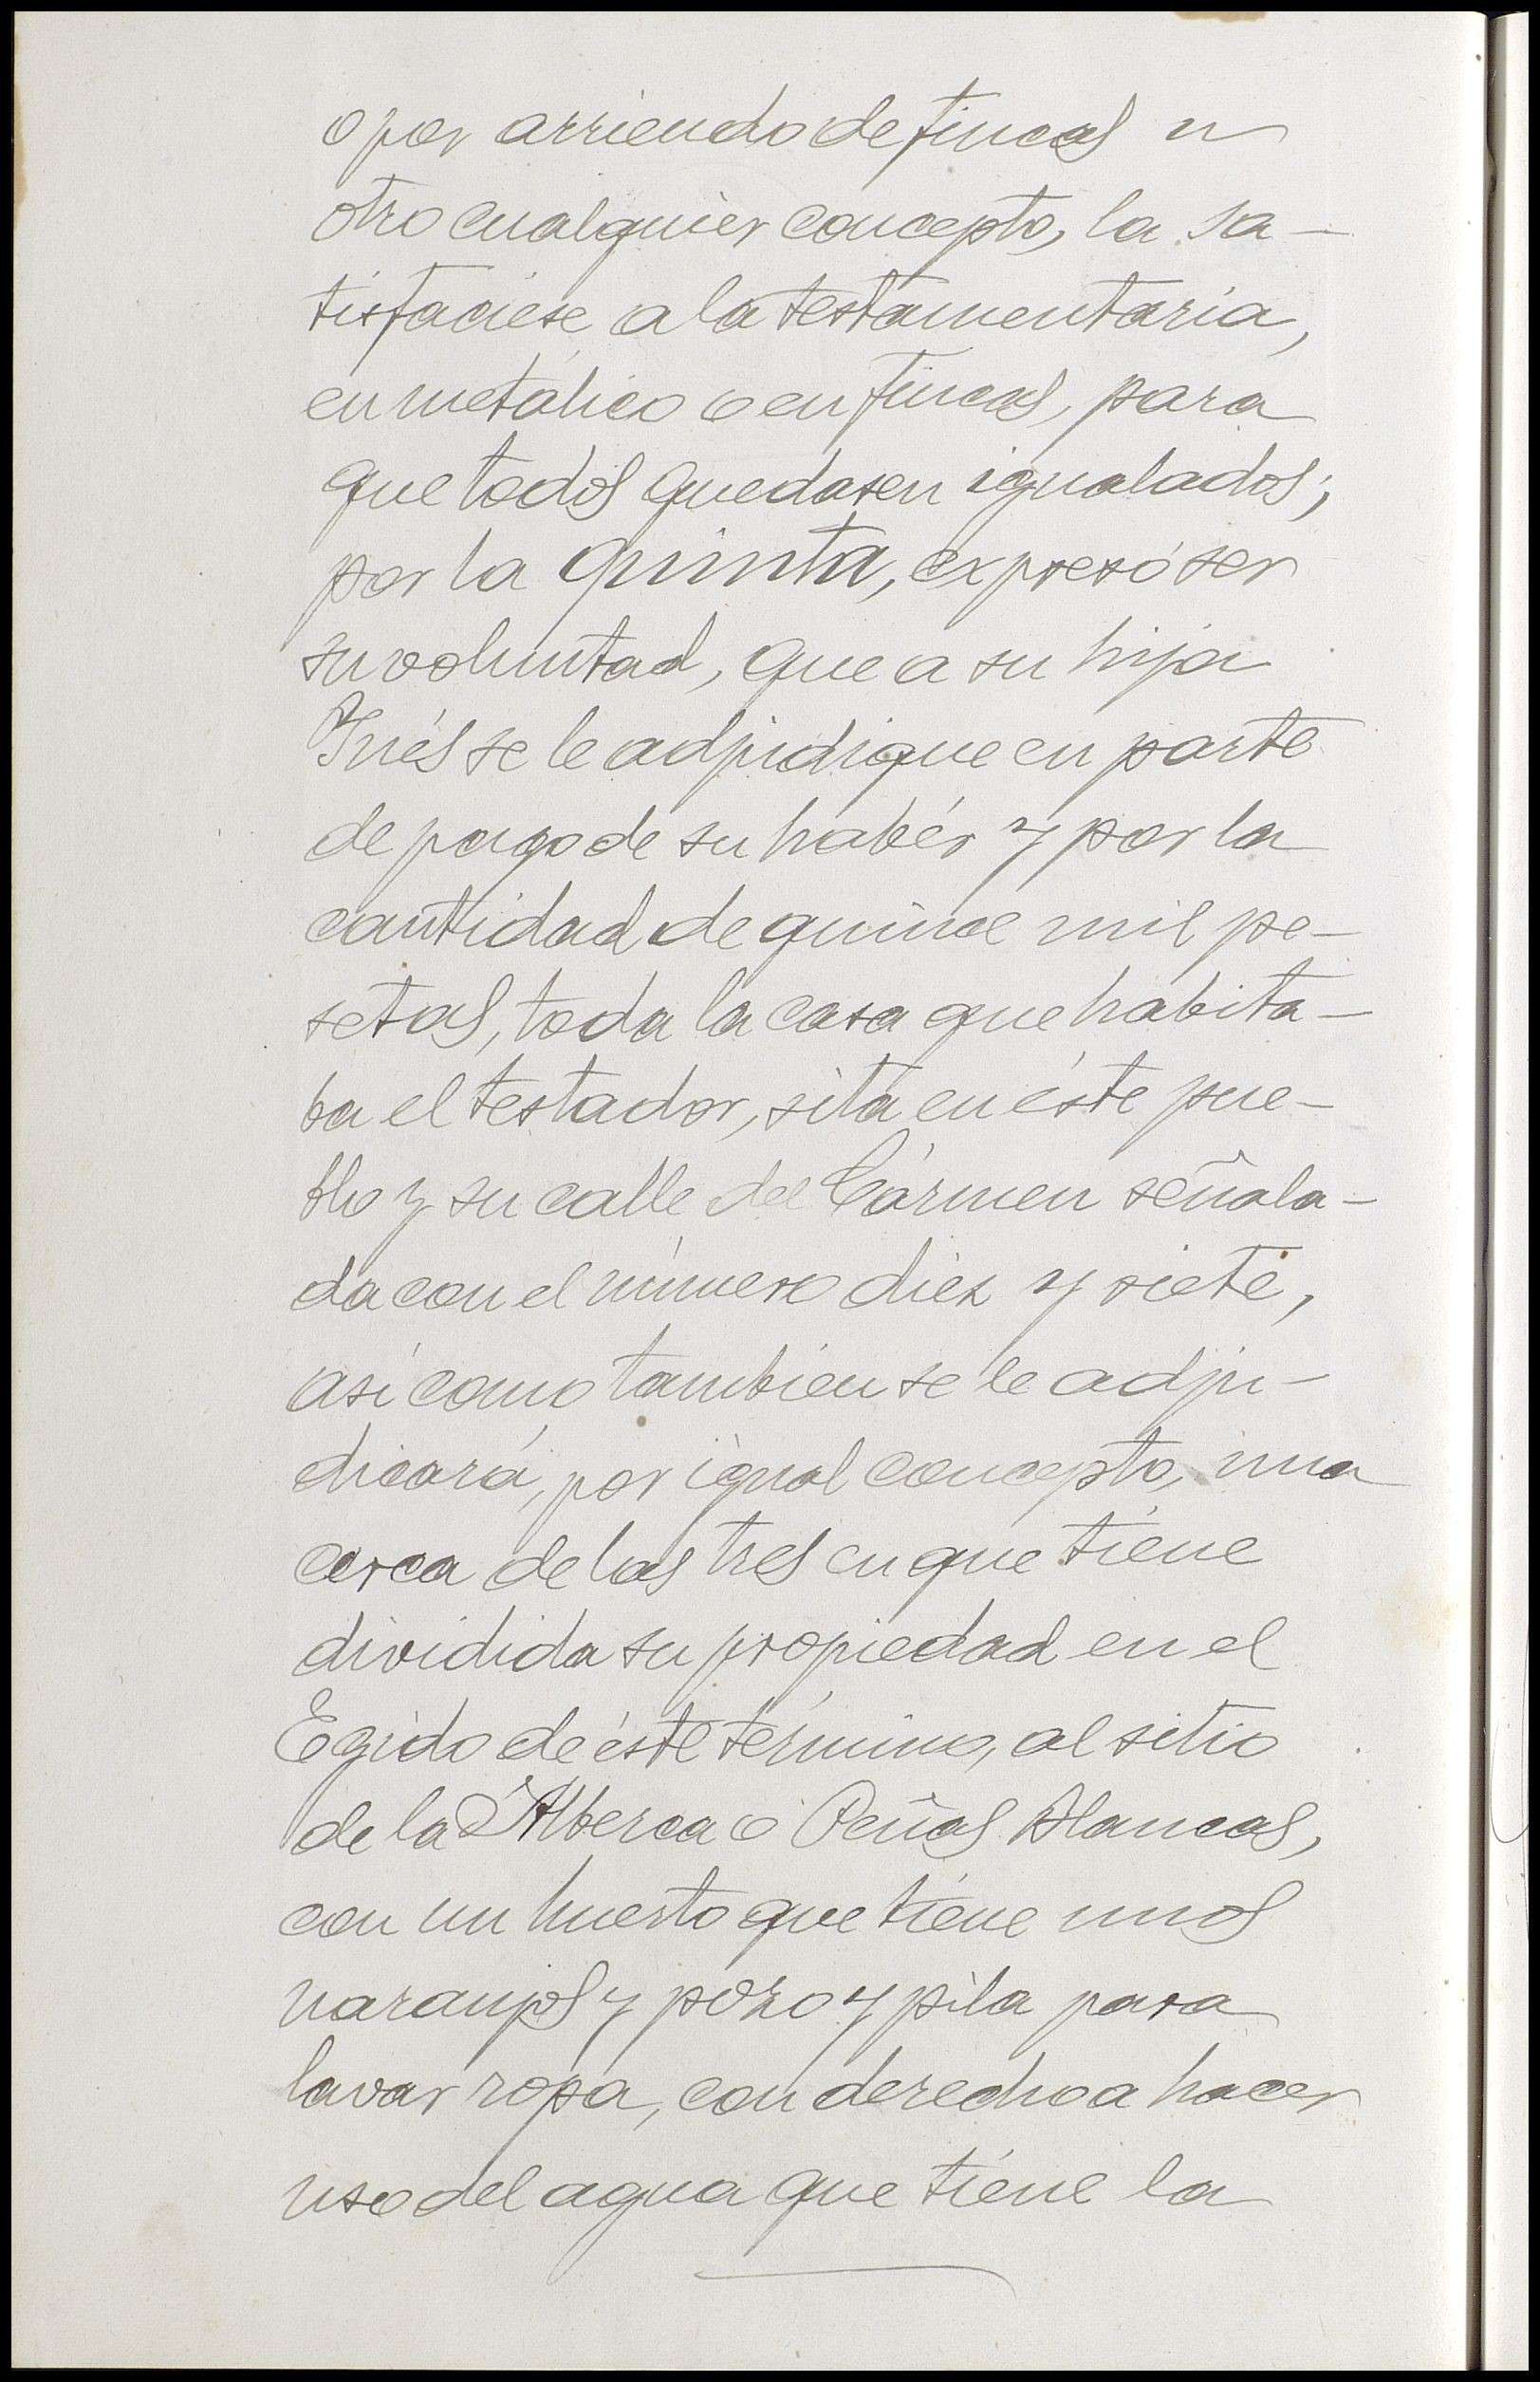 o por arriendo de fincas u
otro cualquier concepto, la sa-
tisfaciese a la testamentaría,
en metálico o en fincas, para
que todos quedasen igualados;
por la quinta, expresó ser
su voluntad, que a su hija
Inés se le adjudique en parte
de pago de su habér y por la
cantidad de quince mil pe-
setas, toda la casa que habita-
ba el testador, sita en éste pue-
blo y su calle del Cármen señala-
da con el número diez y siete,
así como tambien se le adju-
dicará, por igual concepto, una
cerca de las tres en que tiene
dividida su propiedad en el
Egido de éste término, al sitio
de la Alberca o Peñas Blancas,
con un huerto que tiene unos
naranjos y pozo y pila para
lavar ropa, con derecho a hacer
uso del agua que tiene la